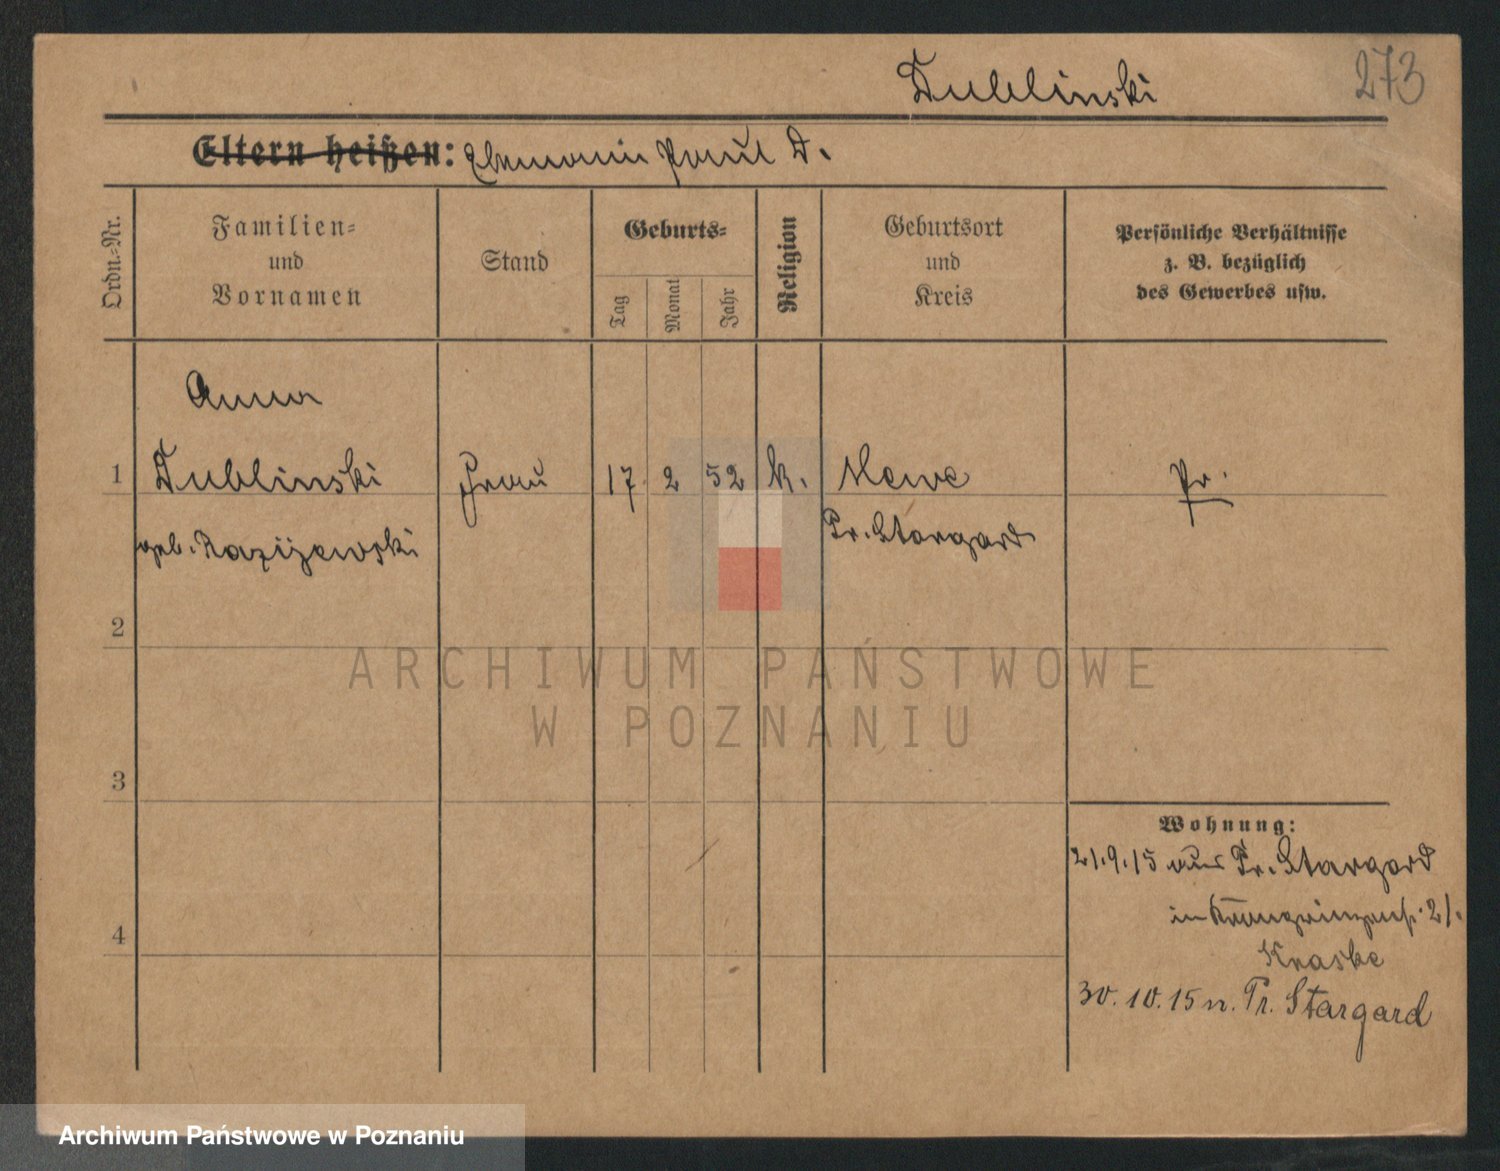 Dublinski
273
Eltern heißen: Ehemann Paul D.
Ordn.-Nr.
Familien-
und
Vornamen
Stand
Geburts-
Tag
Monat
Jahr
Religion
Geburtsort
und
Kreis
Persönliche Verhältnisse
z. B. bezüglich
des Gewerbes usw.
Anna
1 Dublinski Frau 17 2 52 k. Mewe Pr.
geb. Pr. Stargard
2
3
4
Wohnung:
21.9.15 aus Pr. Stargard
in Kronprinzenst. 21.
Kraske
30.10.15 n. Pr. Stargard
ARCHIWUM PAŃSTWOWE
W POZNANIU
Archiwum Państwowe w Poznaniu